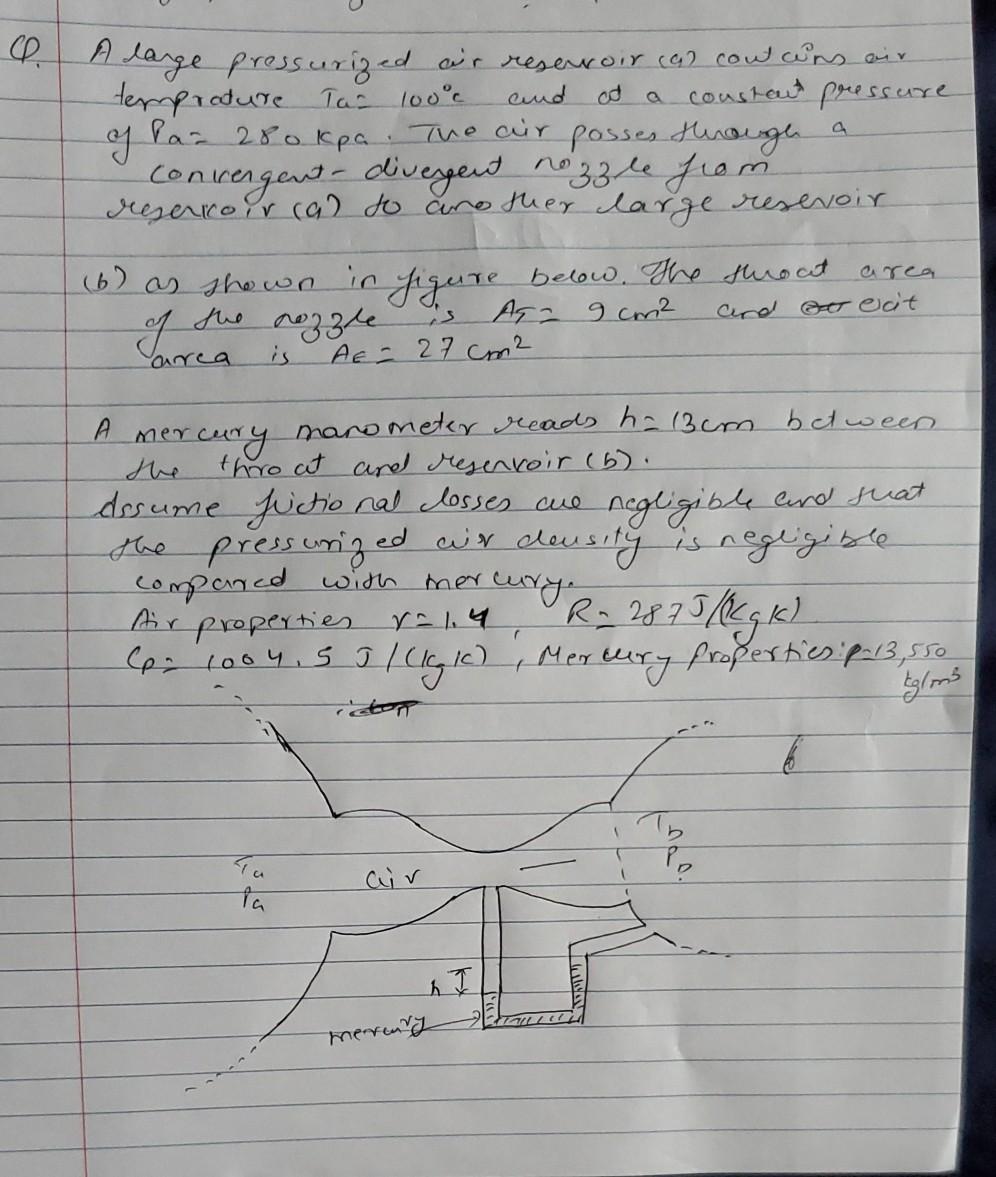 Q. A large pressurized air reservoir (a) contains air
temprature Ta = 100°c and at a constant pressure
of Pa = 280 Kpa. The air passes through a
convergent - divergent nozzle from
reservoir (a) to another large resevoir
(b) as shown in figure below. The throat area
of the nozzle is AT = 9 cm² and exit
area is AE = 27 cm²
A mercury manometer reads h = 13cm between
the throat and reservoir (b).
Assume frictional losses are negligible and that
the pressurized air density is negligible
compared with mercury.
Air properties r = 1.4, R = 287 J/(kg K)
Cp = 1004.5 J/(kg k), Mercury Properties: ρ = 13,550
kg/m³
Ta
Pa
air
Tb
Pb
h
mercury